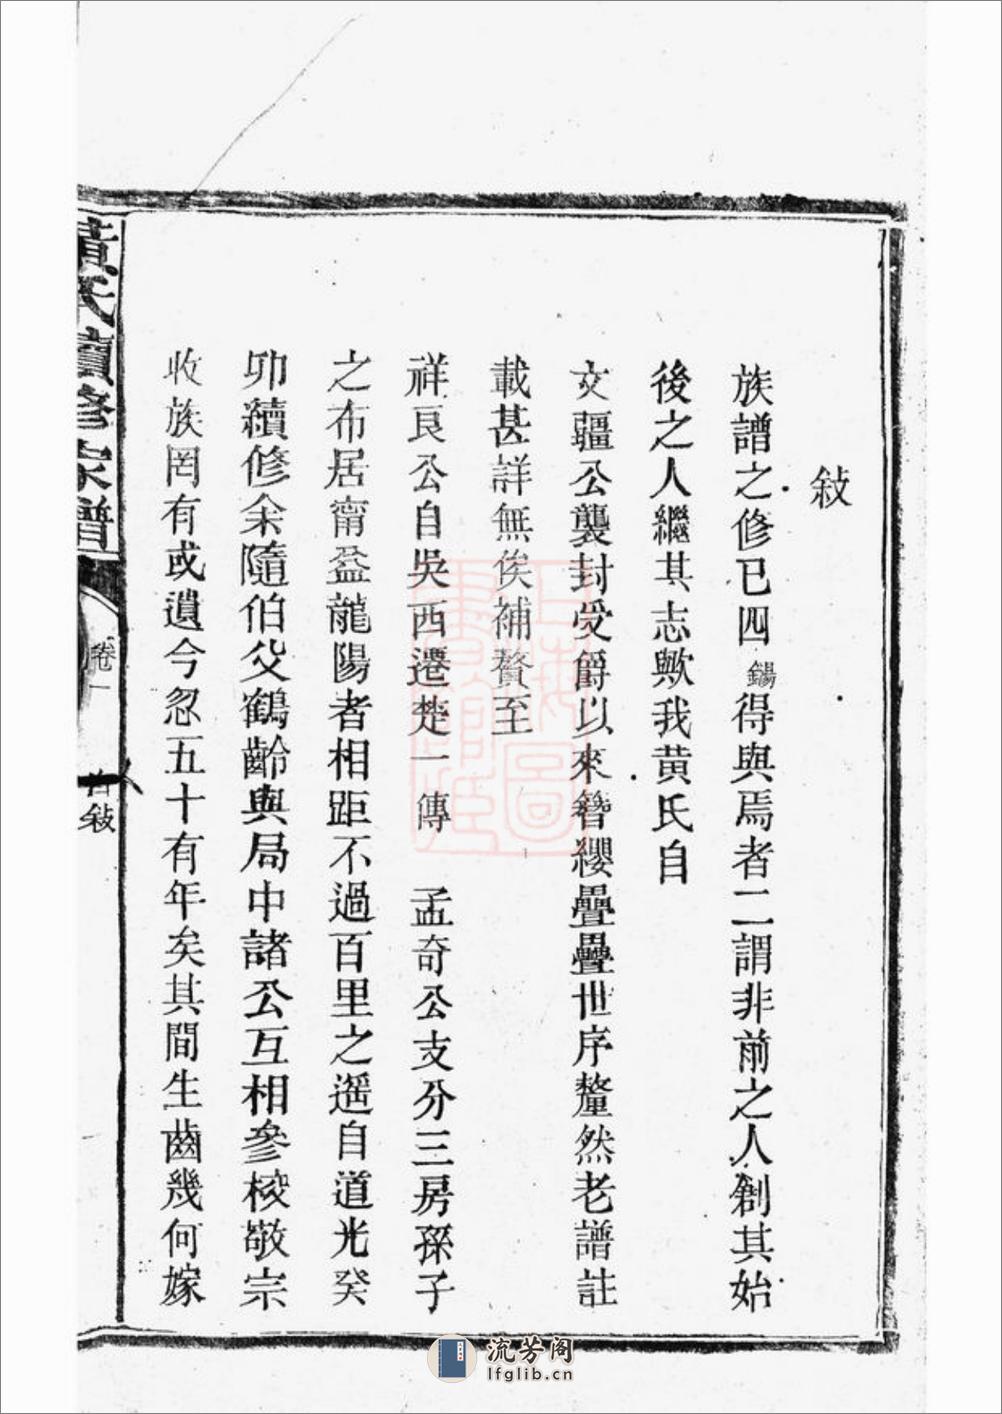 敍
族譜之修已四鍚得與焉者二謂非前之人創其始
後之人繼其志歟我黃氏自
文疆公襲封受爵以來簪纓疊疊世序釐然老譜註
載甚詳無俟補贅至
祥良公自吳西遷楚一傳 孟奇公支分三房孫子
之布居甯益龍陽者相距不過百里之遥自道光癸
卯續修余隨伯父鶴齡與局中諸公互相參校敬宗
收族罔有或遺今忽五十有年矣其間生齒幾何嫁
黃氏續修宗譜
卷一
敍
上海圖書館藏
流芳阁
lfglib.cn